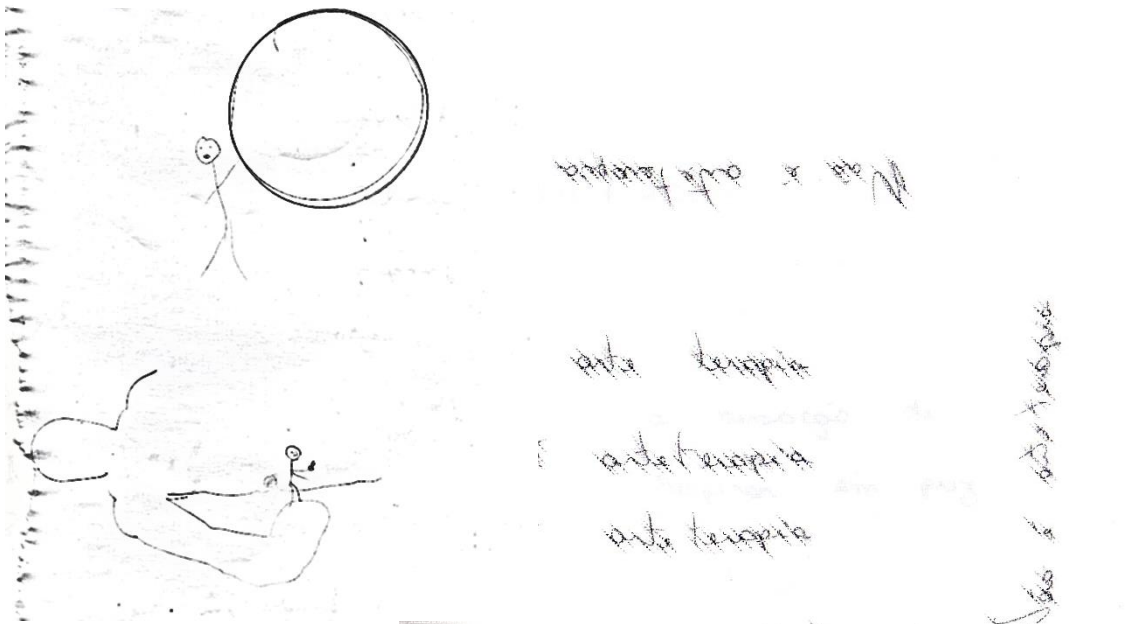 Não é arte terapia
arte terapia
arteterapia
arte terapia
é arte terapia